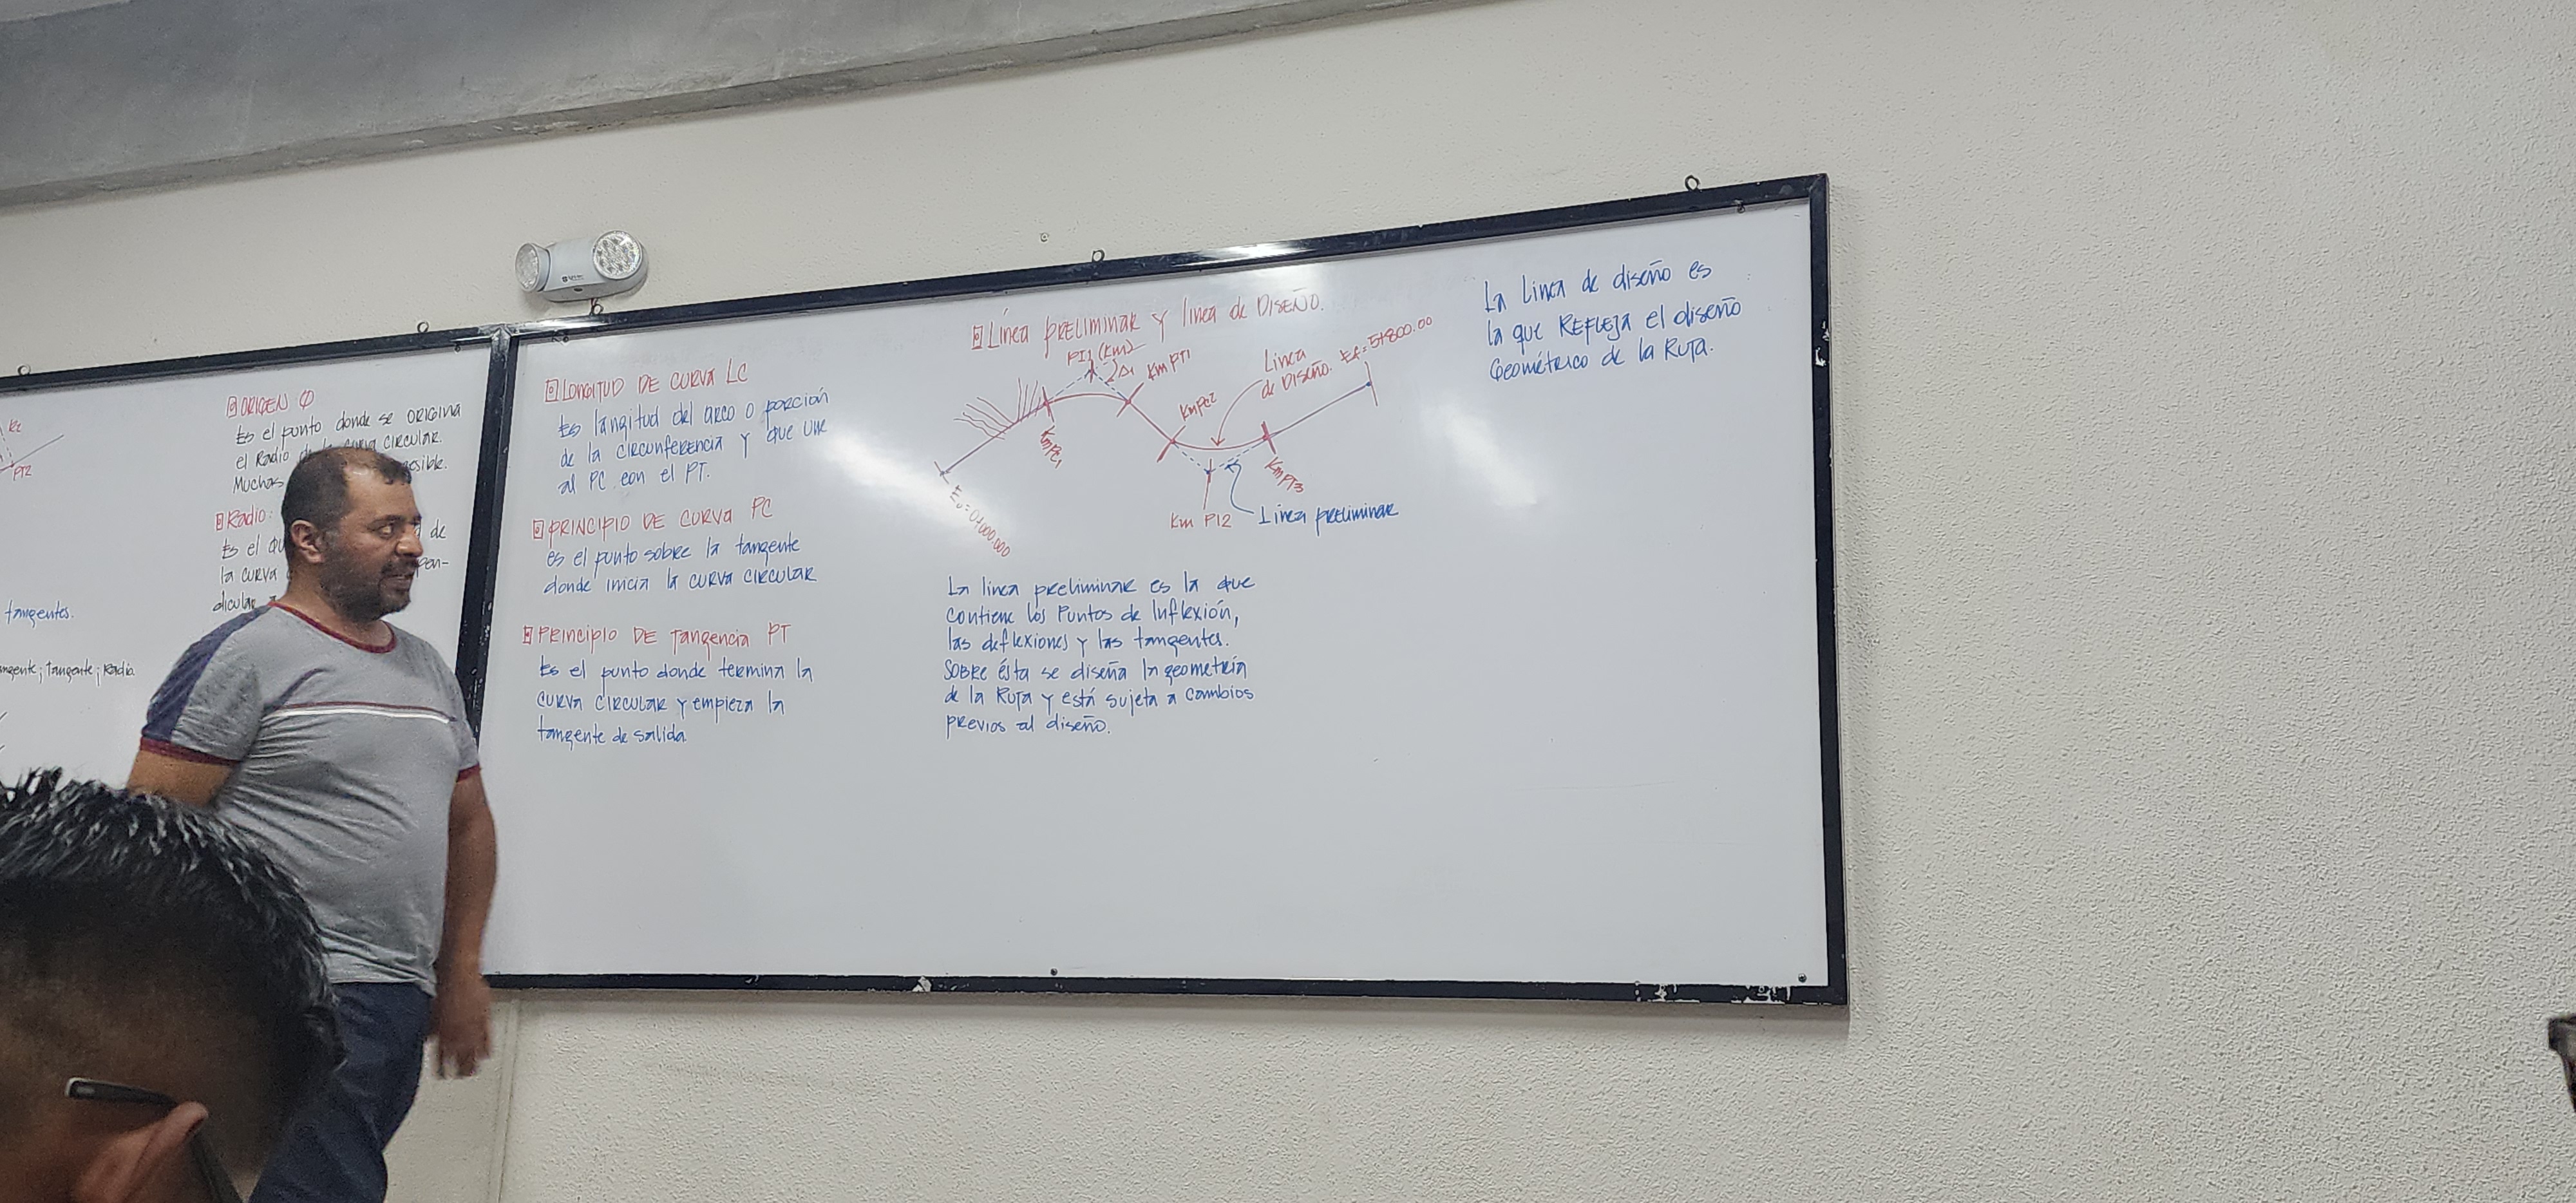 Kc
PT2
tangentes.
tangente; Radio.
ORIGEN O
Es el punto donde se ORIGINA
el Radio de la curva circular.
Muchas
Radio:
Es el de
la curva
dicular
LONGITUD DE CURVA LC
Es longitud del arco o porción
de la circunferencia y que une
al PC con el PT.
PRINCIPIO DE CURVA PC
es el punto sobre la tangente
donde inicia la curva circular
PRINCIPIO DE Tangencia PT
Es el punto donde termina la
curva circular y empieza la
tangente de salida
Línea PRELIMINAR y linea de DISEÑO.
PI1 (Km)
Δ1
Km PT1
Km PC1
Km PC2
Linea
de DISEÑO.
Ef=5+800.00
Km PT3
Km PI2
Linea preliminar
E0=0+000.000
La linea preliminar es la que
contiene los Puntos de Inflexión,
las deflexiones y las tangentes.
SOBRE ésta se diseña la geometría
de la Ruta y está sujeta a cambios
previos al diseño.
La linea de diseño es
la que REFLEJA el diseño
Geométrico de la RUTA.